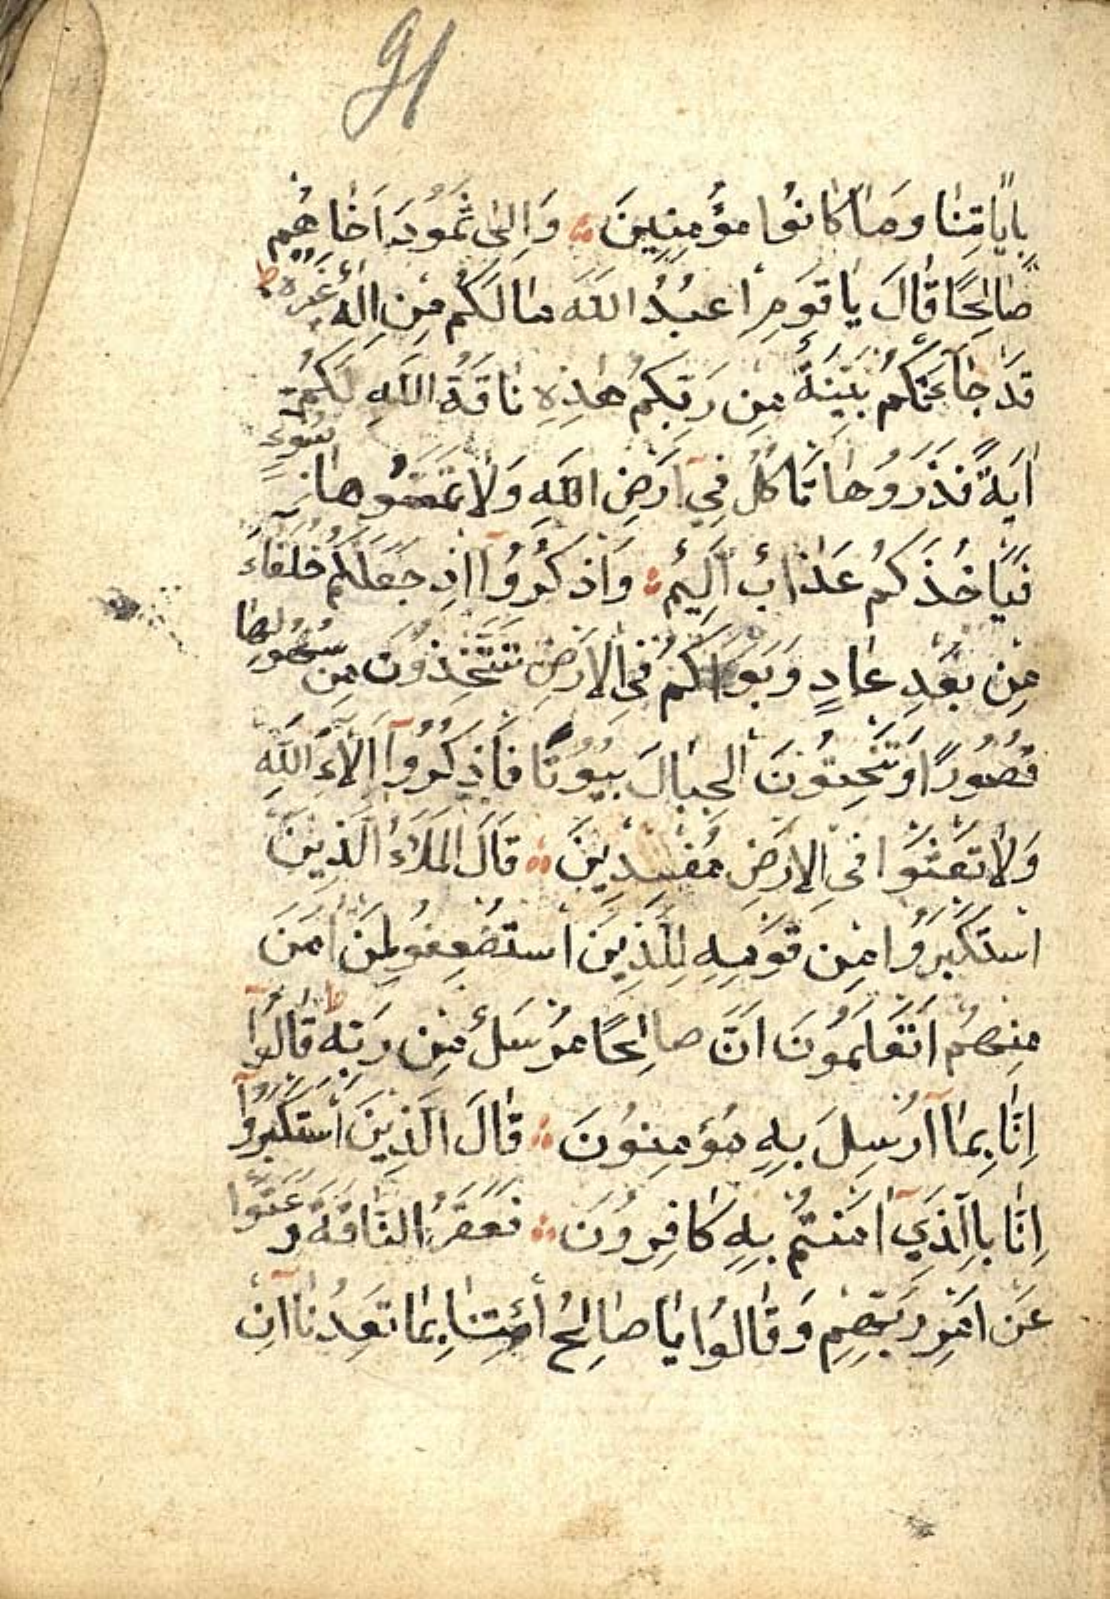 91
بِاٰيَاتِنَا وَمَا كَانُوا مُؤْمِنِينَ ۞ وَاِلٰى ثَمُودَ اَخَاهُمْ
صَالِحًا قَالَ يَا قَوْمِ اعْبُدُ اللّٰهَ مَا لَكُمْ مِنْ اِلٰهٍ غَيْرُهُ ط
قَدْ جَاۤءَتْكُمْ بَيِّنَةٌ مِنْ رَبِّكُمْ هٰذِهِ نَاقَةُ اللّٰهِ لَكُمْ
اٰيَةً فَذَرُوهَا تَاْكُلْ فِيۤ اَرْضِ اللّٰهِ وَلَا تَمَسُّوهَا بِسُوۤءٍ
فَيَاْخُذَكُمْ عَذَابٌ اَلِيمٌ ۞ وَاذْكُرُوۤا اِذْ جَعَلَكُمْ خُلَفَاۤءَ
مِنْ بَعْدِ عَادٍ وَبَوَّاَكُمْ فِي الْاَرْضِ تَتَّخِذُونَ مِنْ سُهُولِهَا
قُصُورًا وَتَنْحِتُونَ الْجِبَالَ بِيُوتًا فَاذْكُرُوۤا اٰلَاۤءَ اللّٰهِ
وَلَا تَعْثَوْا فِي الْاَرْضِ مُفْسِدِينَ ۞ قَالَ الْمَلَاُ الَّذِينَ
اسْتَكْبَرُوا مِنْ قَوْمِهِ لِلَّذِينَ اسْتُضْعِفُو لِمَنْ اٰمَنَ
مِنْهُمْ اَتَعْلَمُونَ اَنَّ صَالِحًا مُرْسَلٌ مِنْ رَبِّهِ ط قَالُوۤا
اِنَّا بِمَاۤ اُرْسِلَ بِهِ مُؤْمِنُونَ ۞ قَالَ الَّذِينَ اسْتَكْبَرُوۤا
اِنَّا بِالَّذِيۤ اٰمَنْتُمْ بِهِ كَافِرُونَ ۞ فَعَقَرُ النَّاقَةَ وَعَتَوْا
عَنْ اَمْرِ رَبِّهِمْ وَقَالُوا يَا صَالِحُ اْئْتِنَا بِمَا تَعِدُنَاۤ اِنْ